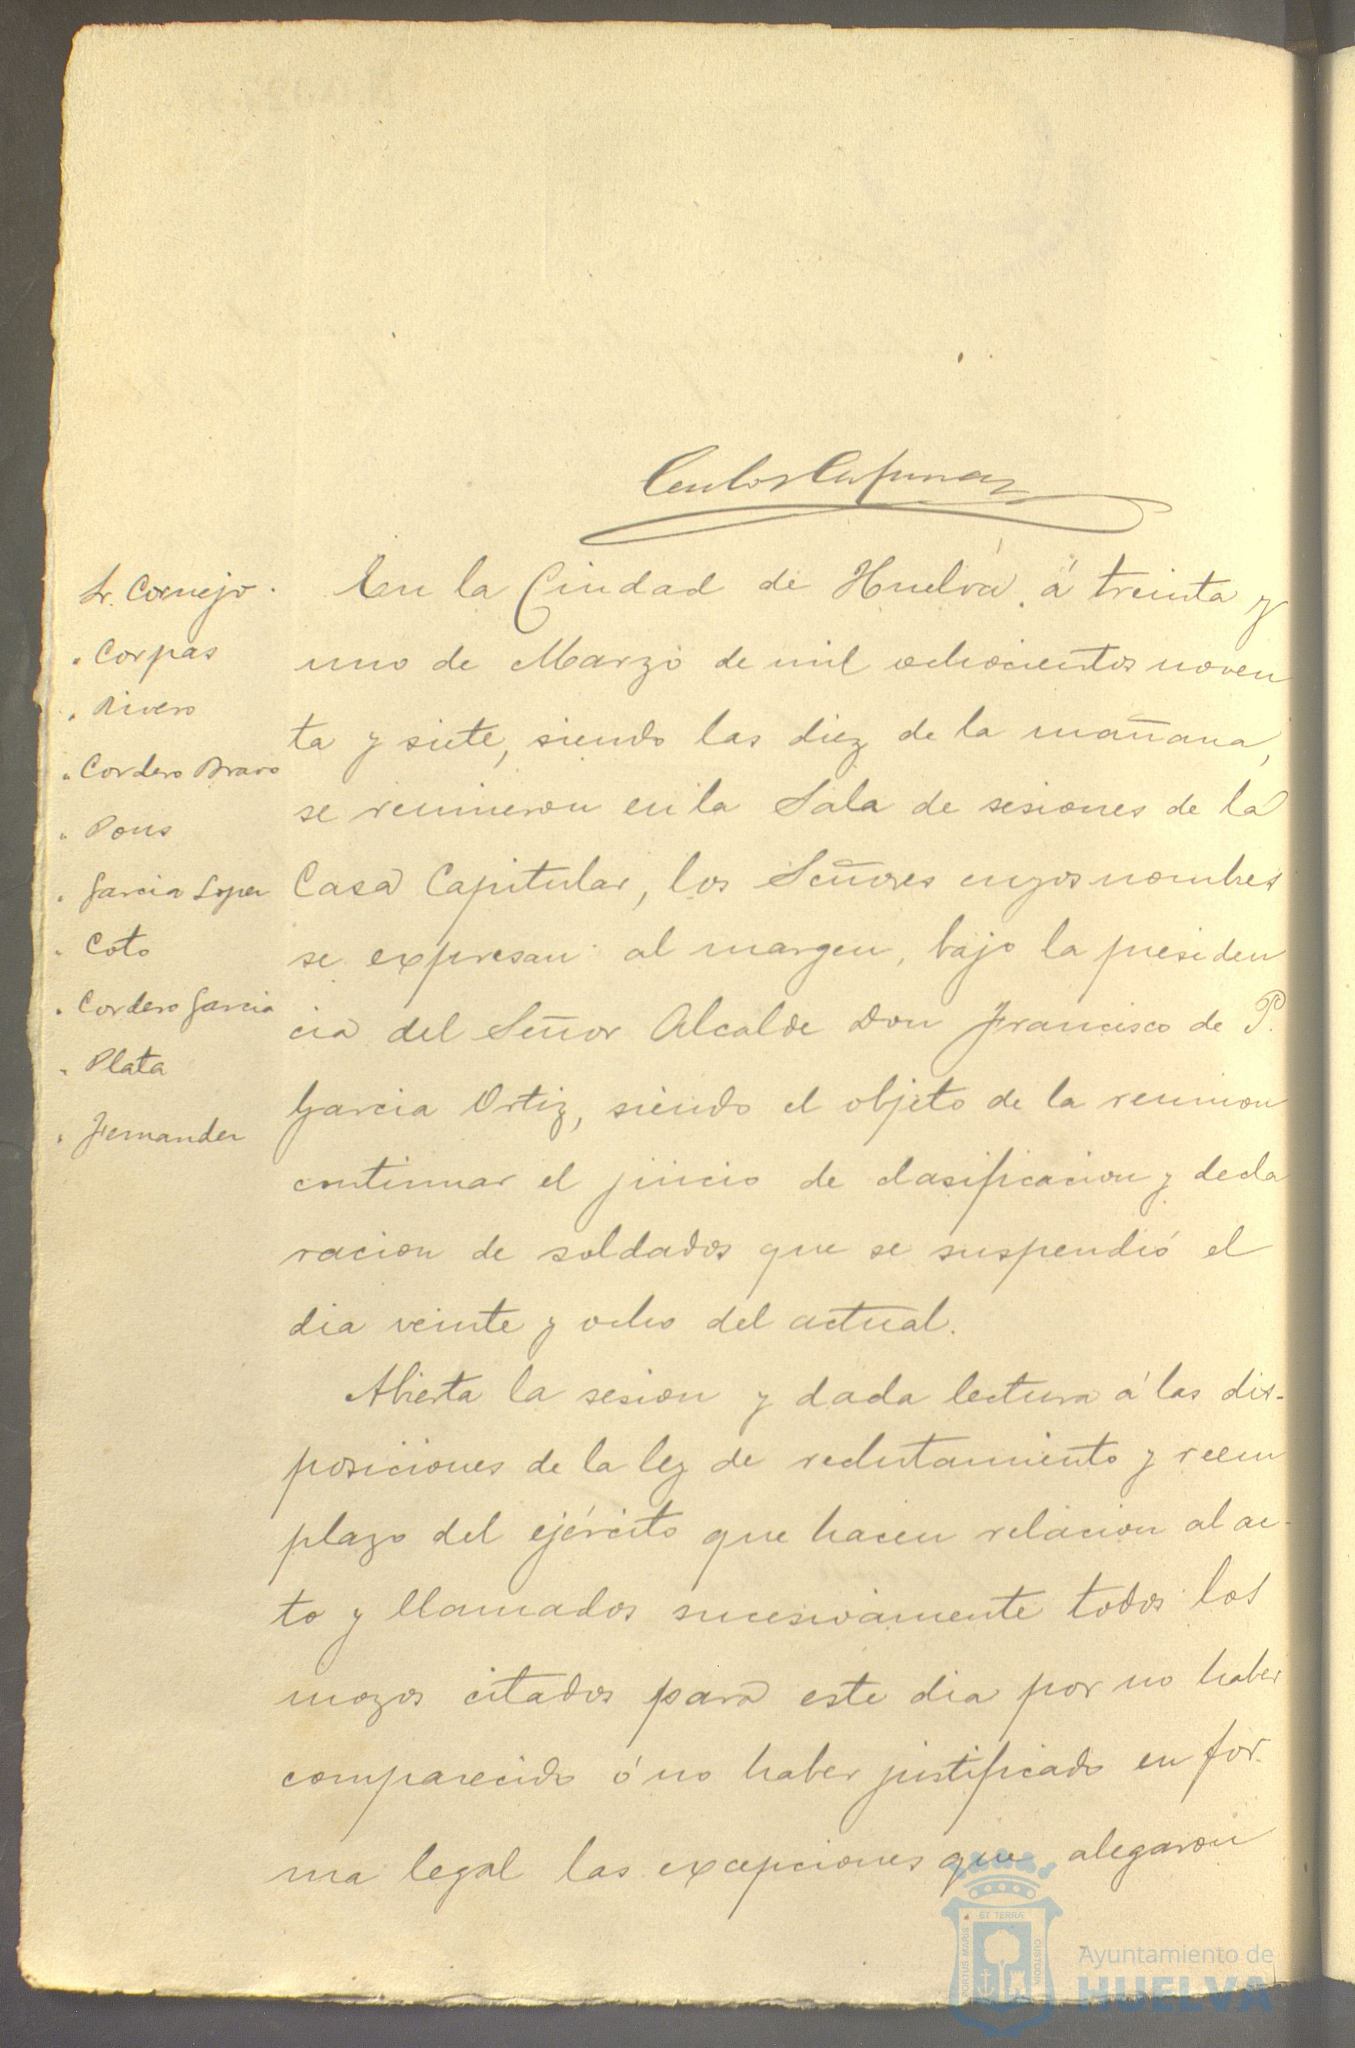 Sr. Cornejo.
" Corpas
" Rivero
" Cordero Bravo
" Pons
" Garcia Lopez
" Coto
" Cordero Garcia
" Plata
" Fernandez
En la Ciudad de Huelva, á treinta y
uno de Marzo de mil ochocientos noven
ta y siete, siendo las diez de la mañana,
se reunieron en la Sala de sesiones de la
Casa Capitular, los Señores cuyos nombres
se expresan al margen, bajo la presiden
cia del Señor Alcalde Don Francisco de P.
Garcia Ortiz, siendo el objeto de la reunion
continuar el juicio de clasificacion y decla
racion de soldados que se suspendió el
dia veinte y ocho del actual.
Abierta la sesion y dada lectura á las dis-
posiciones de la ley de reclutamiento y reem
plazo del ejército que hacen relacion al ac-
to y llamados sucesivamente todos los
mozos citados para este dia por no haber
comparecido ó no haber justificado en for-
ma legal las excepciones que alegaron
Ayuntamiento de
HUELVA